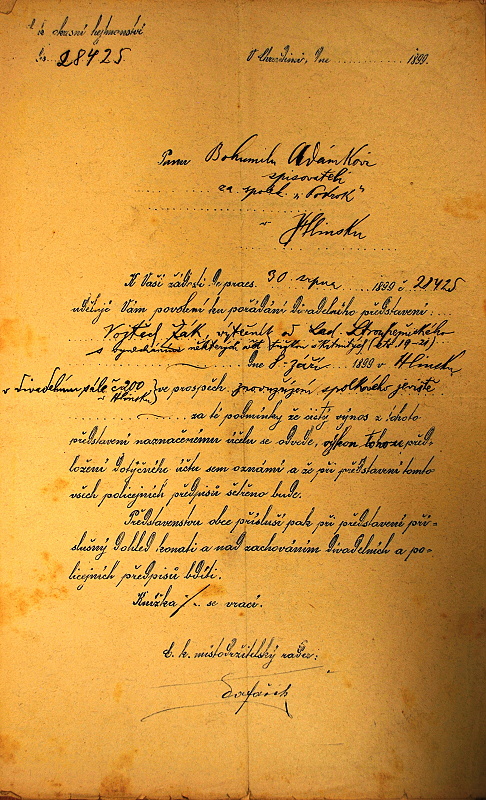 C. k. okresní hejtmanství
Čís. 28425.
V Chrudimi, dne ............ 1899.
Panu Bohumilu Adámkovi
spisovateli
za spolek „Pokrok“
v
Hlinsku
K Vaší žádosti de praes. 30 srpna 1899 č. 28425
uděluji Vám povolení ku pořádání divadelního představení:
Vojtěch Žák, výtečník od Lad. Stroupežnického
s vynecháním některých vět (str. 19-21)
dne 8. září 1899 v Hlinsku
v divadelním sále č. 200 ve prospěch spolkového jeviště
v Hlinsku
za té podmínky že čistý výnos z tohoto
představení naznačenému účelu se odvede, výkon tohoto před-
ložení dotyčného účtu sem oznámí a že při představení tomto
všech policejních předpisů šetřeno bude.
Představenstvu obce přísluší pak při představení pří-
slušný dohled konati a nad zachováním divadelních a po-
licejních předpisů bdíti.
Knížka se vrací.
C. k. místodržitelský rada: